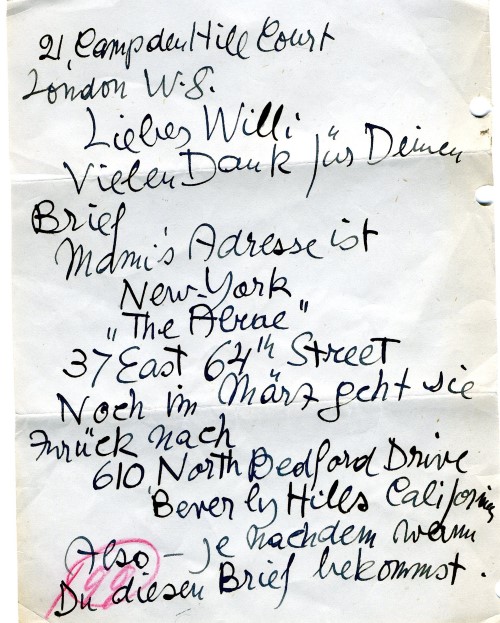 21, Campden Hill Court
London W.8.
Liebes Willi
Vielen Dank für Deinen
Brief
Mami's Adresse ist
New-York
"The Alrae"
37 East 64th Street
Noch im März geht sie
zurück nach
610 North Bedford Drive
Beverly Hills California
Also - je nachdem wann
Du diesen Brief bekommst.